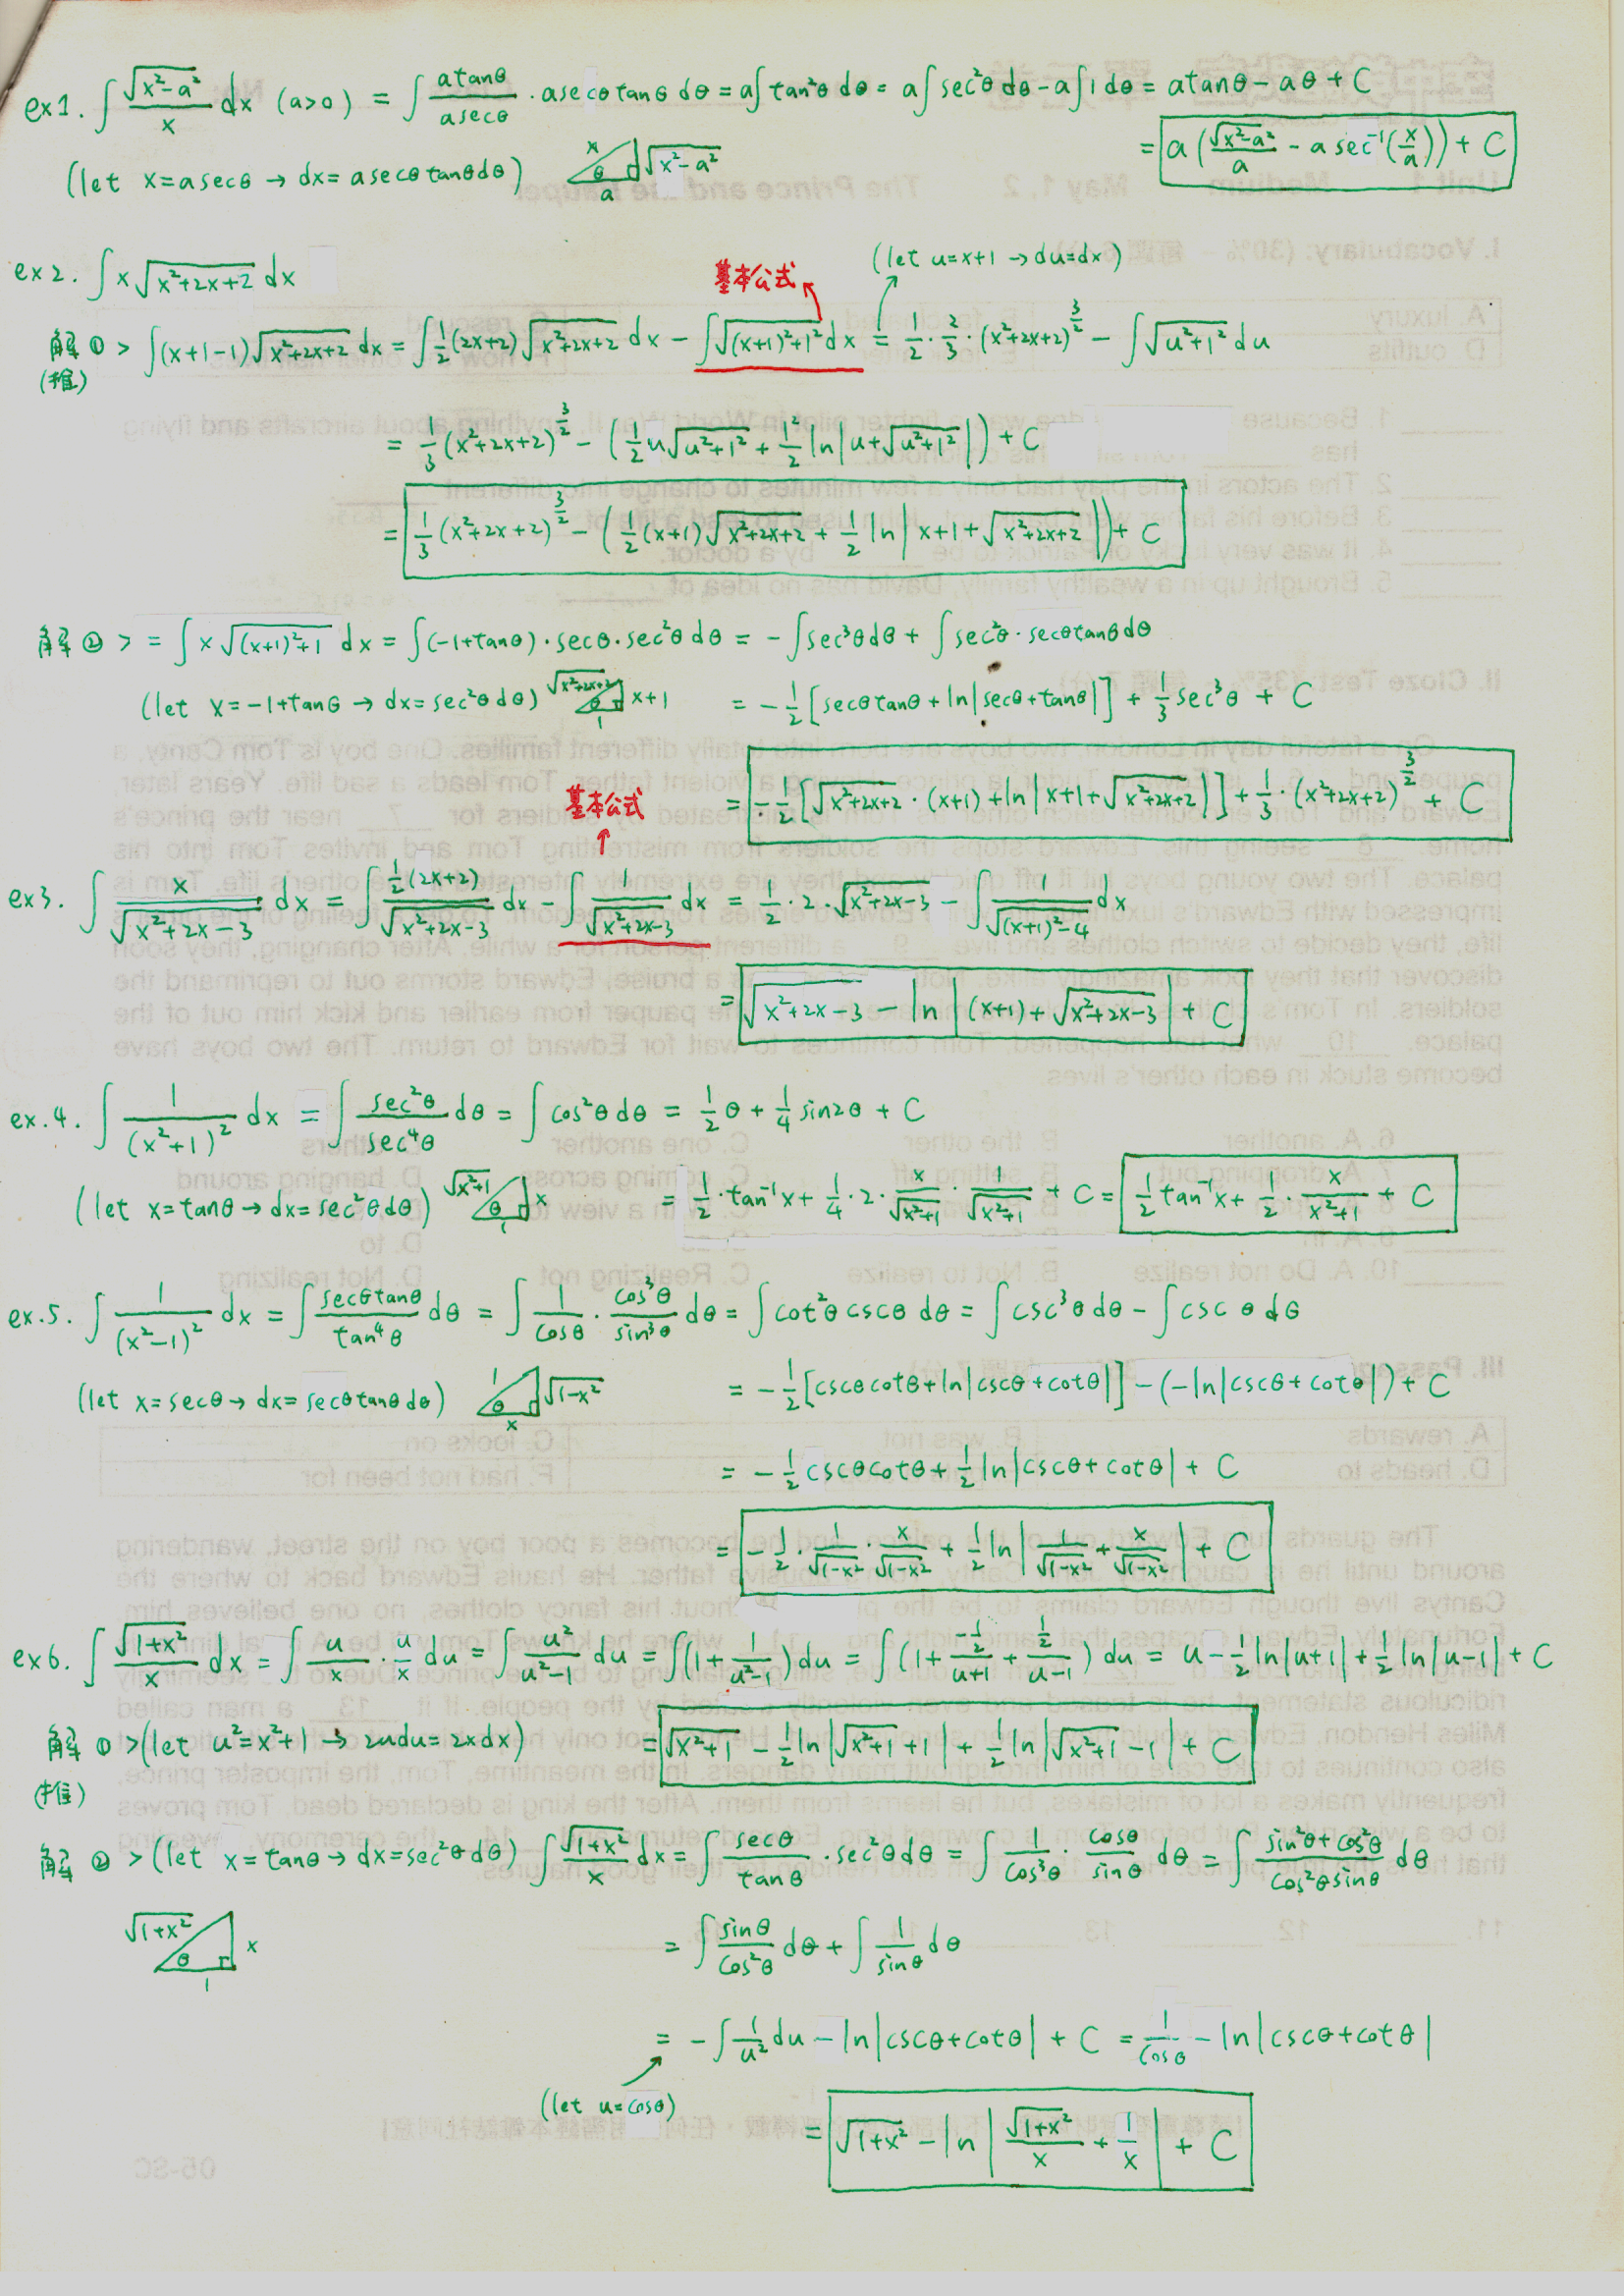 ex1. ∫ √(x²-a²)/x dx (a>0) = ∫ atanθ/asecθ · asecθtanθ dθ = a∫tan²θ dθ = a∫sec²θ dθ - a∫1dθ = atanθ - aθ + C
= a(√(x²-a²)/a - a sec⁻¹(x/a)) + C
(let x=asecθ → dx=asecθtanθdθ) x θ a √(x²-a²)
(let u=x+1 → du=dx)
ex2. ∫x√(x²+2x+2) dx
基本公式
解① > ∫(x+1-1)√(x²+2x+2) dx = ∫½(2x+2)√(x²+2x+2) dx - ∫√((x+1)²+1²) dx = ½·⅔·(x²+2x+2)^(3/2) - ∫√(u²+1²) du
(推)
= ⅓(x²+2x+2)^(3/2) - (½u√(u²+1²) + 1²/2 ln|u+√(u²+1²)|) + C
= ⅓(x²+2x+2)^(3/2) - (½(x+1)√(x²+2x+2) + ½ln|x+1+√(x²+2x+2)|) + C
解② > = ∫x√((x+1)²+1) dx = ∫(-1+tanθ)·secθ·sec²θ dθ = -∫sec³θdθ + ∫sec²θ·secθtanθdθ
(let x=-1+tanθ → dx=sec²θdθ) √(x²+2x+2) θ 1 x+1 = -½[secθtanθ+ln|secθ+tanθ|] + ⅓sec³θ + C
= -½[√(x²+2x+2)·(x+1)+ln|x+1+√(x²+2x+2)|] + ⅓·(x²+2x+2)^(3/2) + C
基本公式
ex3. ∫ x/√(x²+2x-3) dx = ∫ ½(2x+2)/√(x²+2x-3) dx - ∫ 1/√(x²+2x-3) dx = ½·2·√(x²+2x-3) - ∫ 1/√((x+1)²-4) dx
= √(x²+2x-3) - ln|(x+1)+√(x²+2x-3)| + C
ex.4. ∫ 1/(x²+1)² dx = ∫ sec²θ/sec⁴θ dθ = ∫cos²θdθ = ½θ + ¼sin2θ + C
(let x=tanθ → dx=sec²θdθ) √(x²+1) θ 1 x = ½·tan⁻¹x + ¼·2·x/√(x²+1)·1/√(x²+1) + C = ½tan⁻¹x + ½·x/(x²+1) + C
ex.5. ∫ 1/(x²-1)² dx = ∫ secθtanθ/tan⁴θ dθ = ∫ 1/cosθ · cos³θ/sin³θ dθ = ∫cot²θcscθ dθ = ∫csc³θdθ - ∫csc θdθ
(let x=secθ → dx=secθtanθdθ) 1 θ x √(1-x²) = -½[cscθcotθ+ln|cscθ+cotθ|] - (-ln|cscθ+cotθ|) + C
= -½cscθcotθ + ½ln|cscθ+cotθ| + C
= -½·1/√(1-x²)·x/√(1-x²) + ½ln|1/√(1-x²) + x/√(1-x²)| + C
ex6. ∫ √(1+x²)/x dx = ∫ u/x·u/x du = ∫ u²/(u²-1) du = ∫(1+1/(u²-1))du = ∫(1+ -½/(u+1) + ½/(u-1)) du = u-½ln|u+1|+½ln|u-1|+C
解① >(let u²=x²+1 → 2udu=2xdx) = √(x²+1) - ½ln|√(x²+1)+1| + ½ln|√(x²+1)-1| + C
(推)
解② >(let x=tanθ → dx=sec²θdθ) ∫ √(1+x²)/x dx = ∫ secθ/tanθ·sec²θdθ = ∫ 1/cos³θ · cosθ/sinθ dθ = ∫ (sin²θ+cos²θ)/(cos²θsinθ) dθ
√(1+x²) θ 1 x = ∫ sinθ/cos²θ dθ + ∫ 1/sinθ dθ
= -∫ 1/u² du - ln|cscθ+cotθ| + C = 1/cosθ - ln|cscθ+cotθ|
(let u=cosθ)
= √(1+x²) - ln|√(1+x²)/x + 1/x| + C